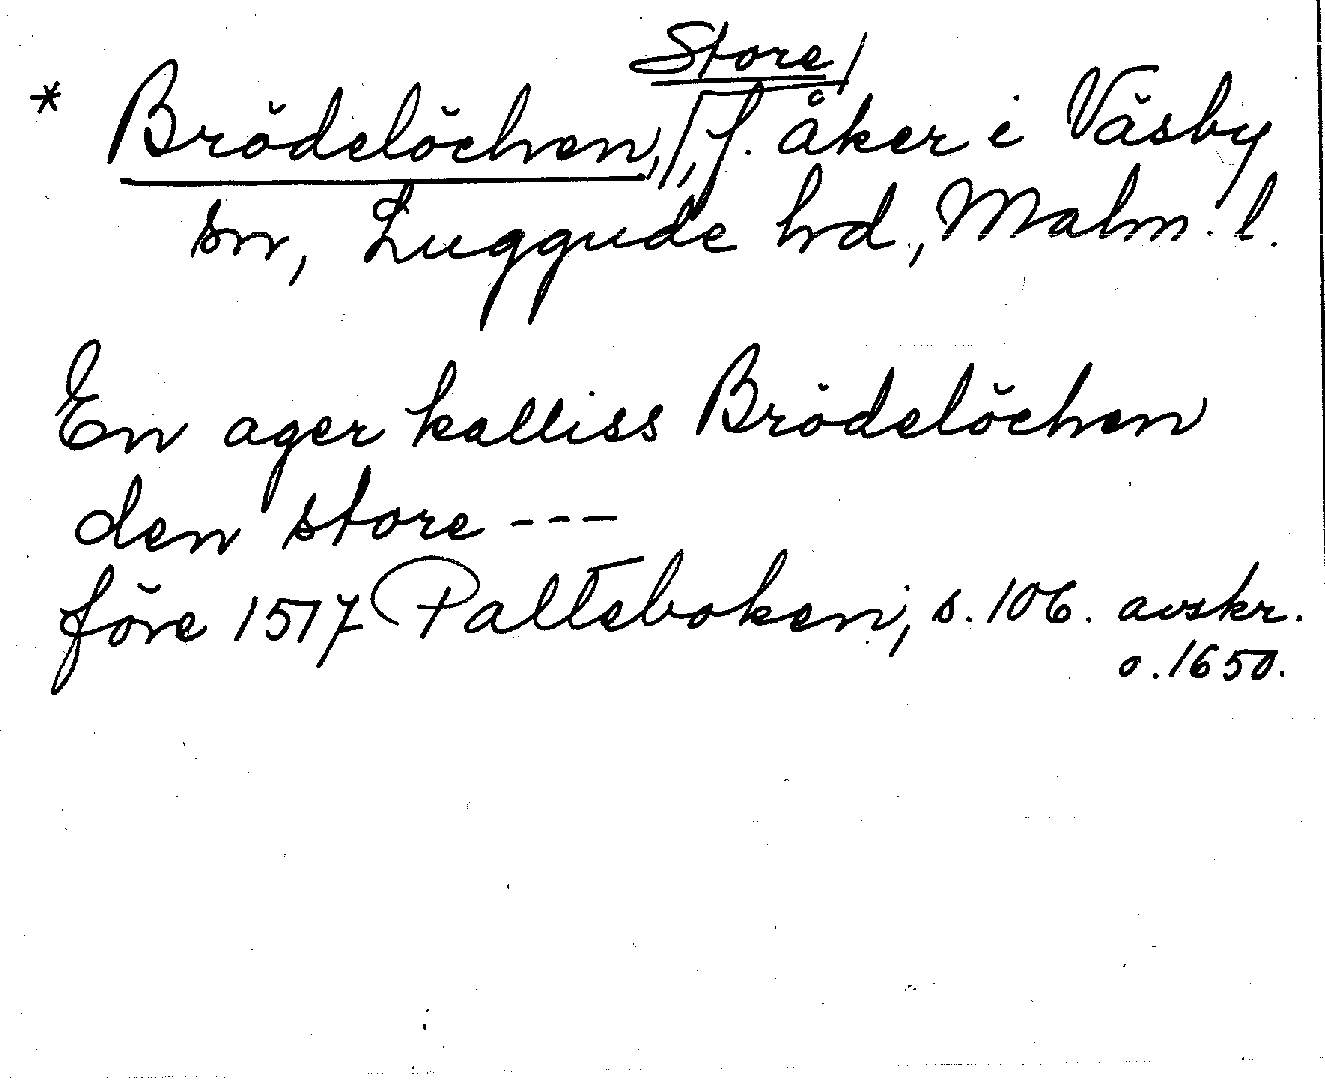 Store
* Brödelöchen, f. åker i Väsby
sn, Luggude hd, Malm. l.
En ager kalliss Brödelöchen
den store ---
före 1517 Palteboken, s. 106. avskr.
o. 1650.